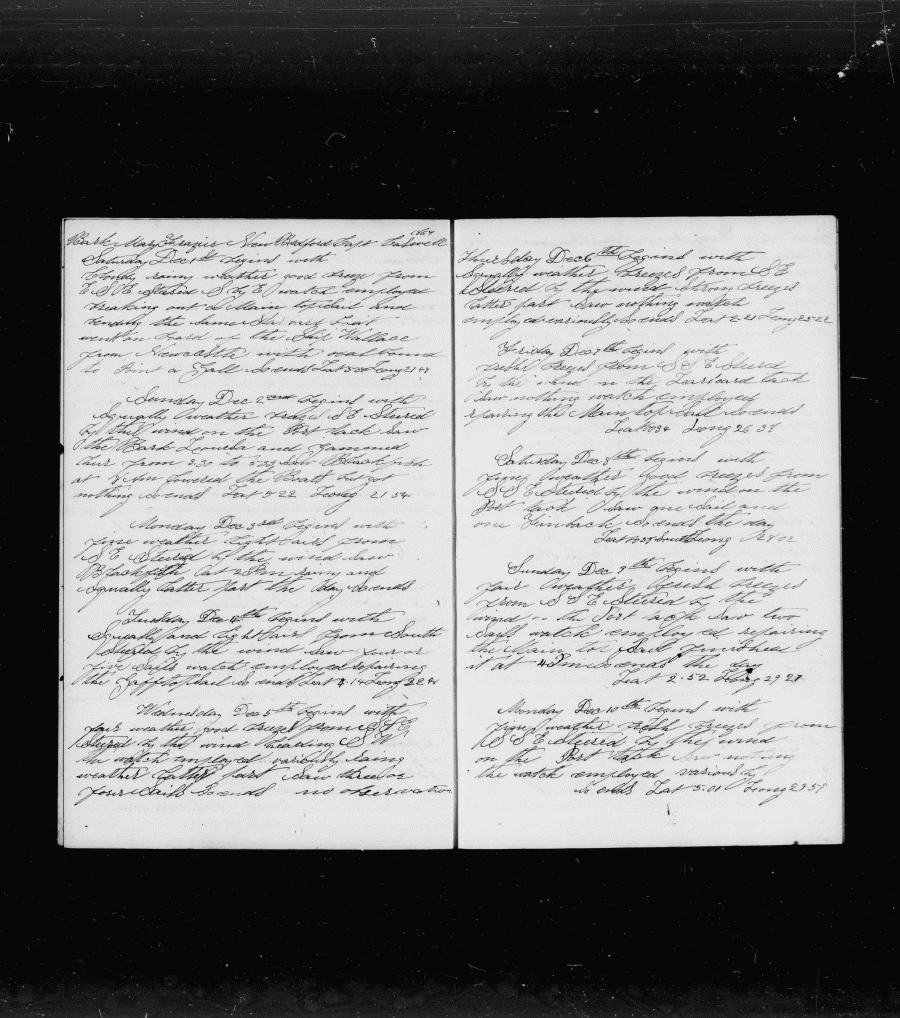 Bark Mary Frazier New Bedford Capt
Saturday Dec 1st begins with
Cloudy rainy weather good breeze from
E S E Steered S by E watch employed
breaking out a Main topsail and
bending the same Star board boat
went on board of the Ship Wallace
from Newcastle with coal bound
to Point a Gall So ends Lat Long
Sunday Dec 2ond begins with
Squally weather S E Steered
by the wind on the Port tack Saw
the Bark and gammed
from 3.30 to Saw Blackfish
at Am lowered the Boats but got
nothing So ends Lat 22 Long 21 54
Monday Dec 3rd begins with
fine weather light airs from
S E Steered by the wind Saw
Blackfish at 2 Pm rainy and
Squally latter part the day So ends
Tuesday Dec 4th begins with
Squally and light airs from South
Steered by the wind Saw four or
five Sails watch employed repairing
the Gafftopsail So ends Lat 4.14 Long 22
Wednesday Dec 5th begins with
fair weather good breezes from S S E
Steered by the wind heading S W
the watch employed variously rainy
weather latter part Saw three or
four Sails So ends no observation
Thursday Dec 6th begins with
Squally weather breezes from S E
Steered by the wind Strong breezes
latter part Saw nothing watch
employed variously So ends Lat Long 25 22
Friday Dec 7th begins with
fresh breezes from S S E Steered
by the wind on the Larboard tack
Saw nothing watch employed
repairing the Main topsail So ends
Lat Long 26 38
Saturday Dec 8th begins with
fine weather Good breezes from
S S E Steered by the wind on the
Port tack Saw one Sail and
one Finback So ends the day
Lat South Long 28 02
Sunday Dec 9th begins with
fair weather fresh breezes
from S S E Steered by the
wind on the Port tack Saw two
Sails watch employed repairing
the Main top Sail finished
it at 4 Pm So ends the day
Lat 2.52 Long 29 27
Monday Dec 10th begins with
fine weather fresh breezes from
S S E Steered by the wind
on the Port tack Saw nothing
the watch employed variously
So ends Lat 5.01 Long 29 57